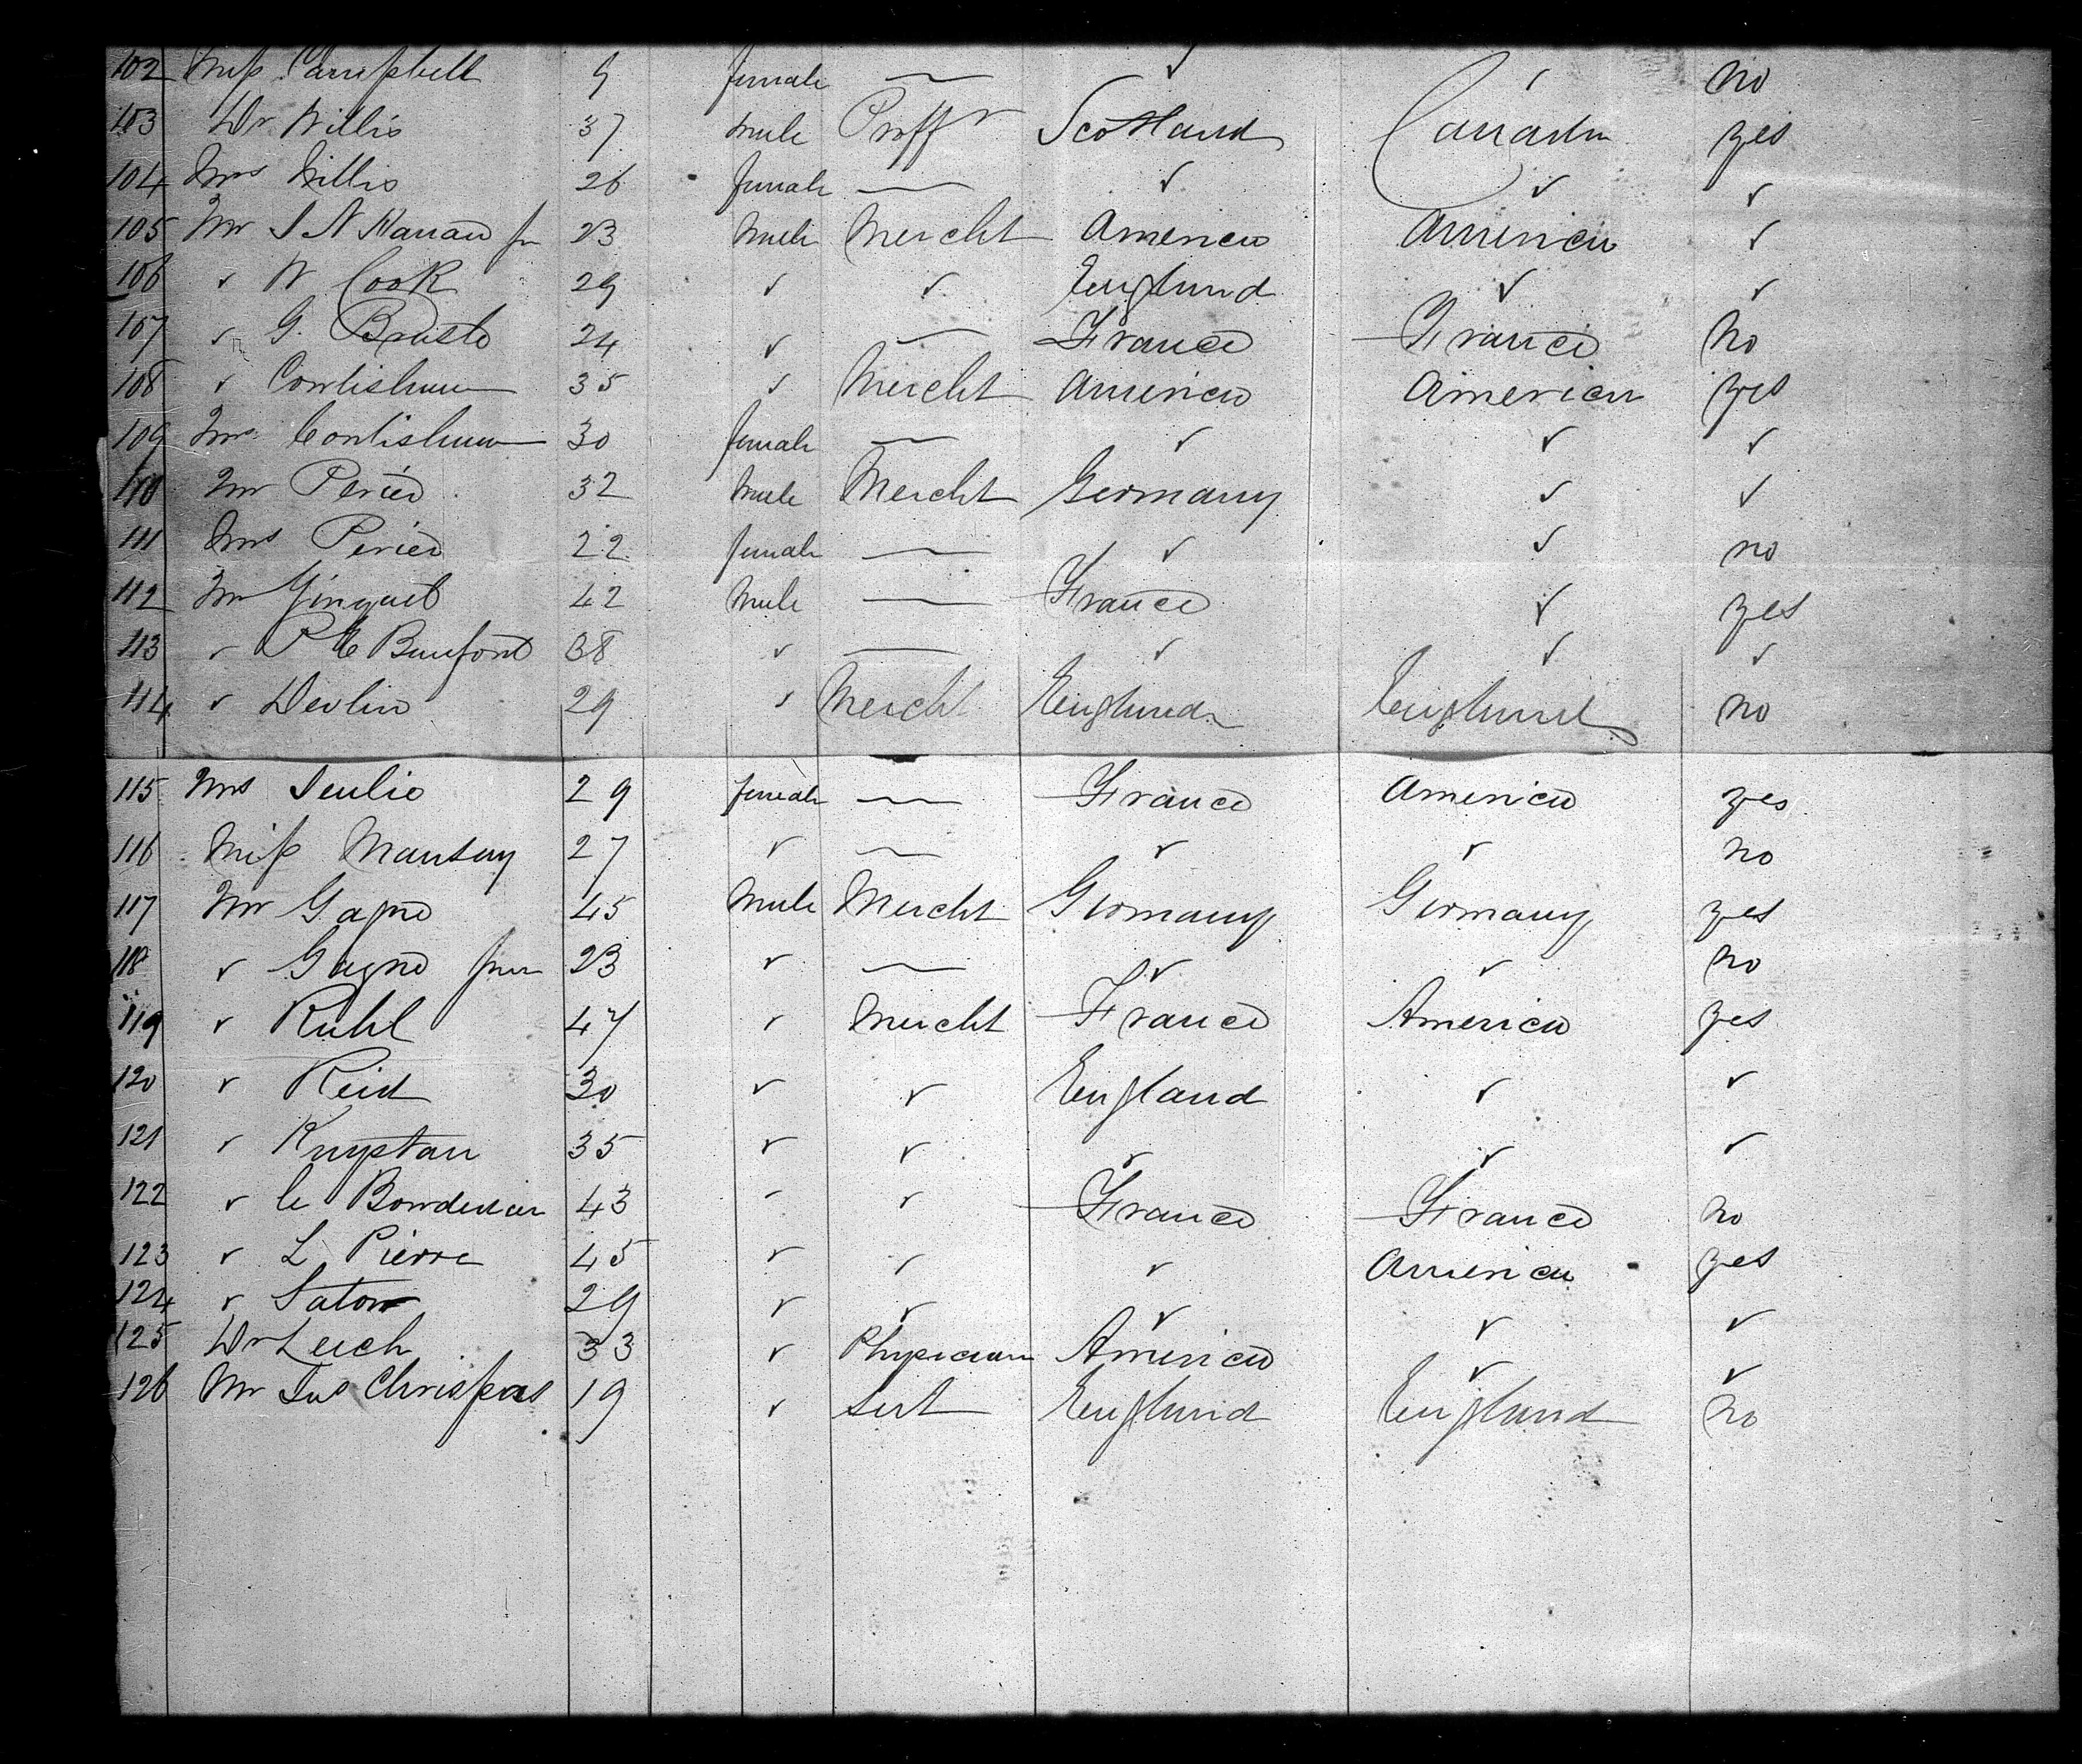 102 Miss Campbell 9 female — ✓ ✓ no
103 Dr Willis 37 male Proffr Scotland Canada yes
104 Mrs Willis 26 female — ✓ ✓ ✓
105 Mr J N Hanan Jr 23 Male Mercht America America ✓
106 ✓ W Cook 29 ✓ ✓ England ✓ ✓
107 ✓ G. 24 ✓ — France France No
108 ✓ 35 ✓ Mercht America America yes
109 Mrs 30 female — ✓ ✓ ✓
110 Mr Perier 32 Male Mercht Germany ✓ ✓
111 Mrs Perier 22 female — ✓ ✓ no
112 Mr 42 Male — France ✓ yes
113 ✓ 38 ✓ — ✓ ✓ ✓
114 ✓ Devlin 29 ✓ Mercht England England no
115 Mrs 29 female — France America yes
116 Miss 27 ✓ — ✓ ✓ no
117 Mr 45 Male Mercht Germany Germany yes
118 ✓ 23 ✓ — ✓ ✓ no
119 ✓ Ruhl 47 ✓ Mercht France America yes
120 ✓ Reid 30 ✓ ✓ England ✓ ✓
121 ✓ 35 ✓ ✓ ✓ ✓ ✓
122 ✓ 43 - ✓ France France no
123 ✓ L Pierre 45 ✓ ✓ ✓ America yes
124 ✓ 29 ✓ ✓ ✓ ✓ ✓
125 Dr Leich 33 ✓ Physician America ✓ ✓
126 Mr 19 ✓ England England no